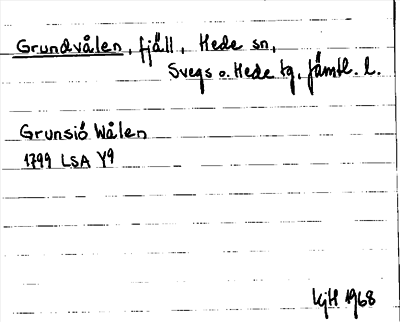 Grundvålen, fjäll, Hede sn,
Svegs o. Hede tg, Jämtl. l.
Grunsiö Wålen
1799 LSA Y9
KjH 1968